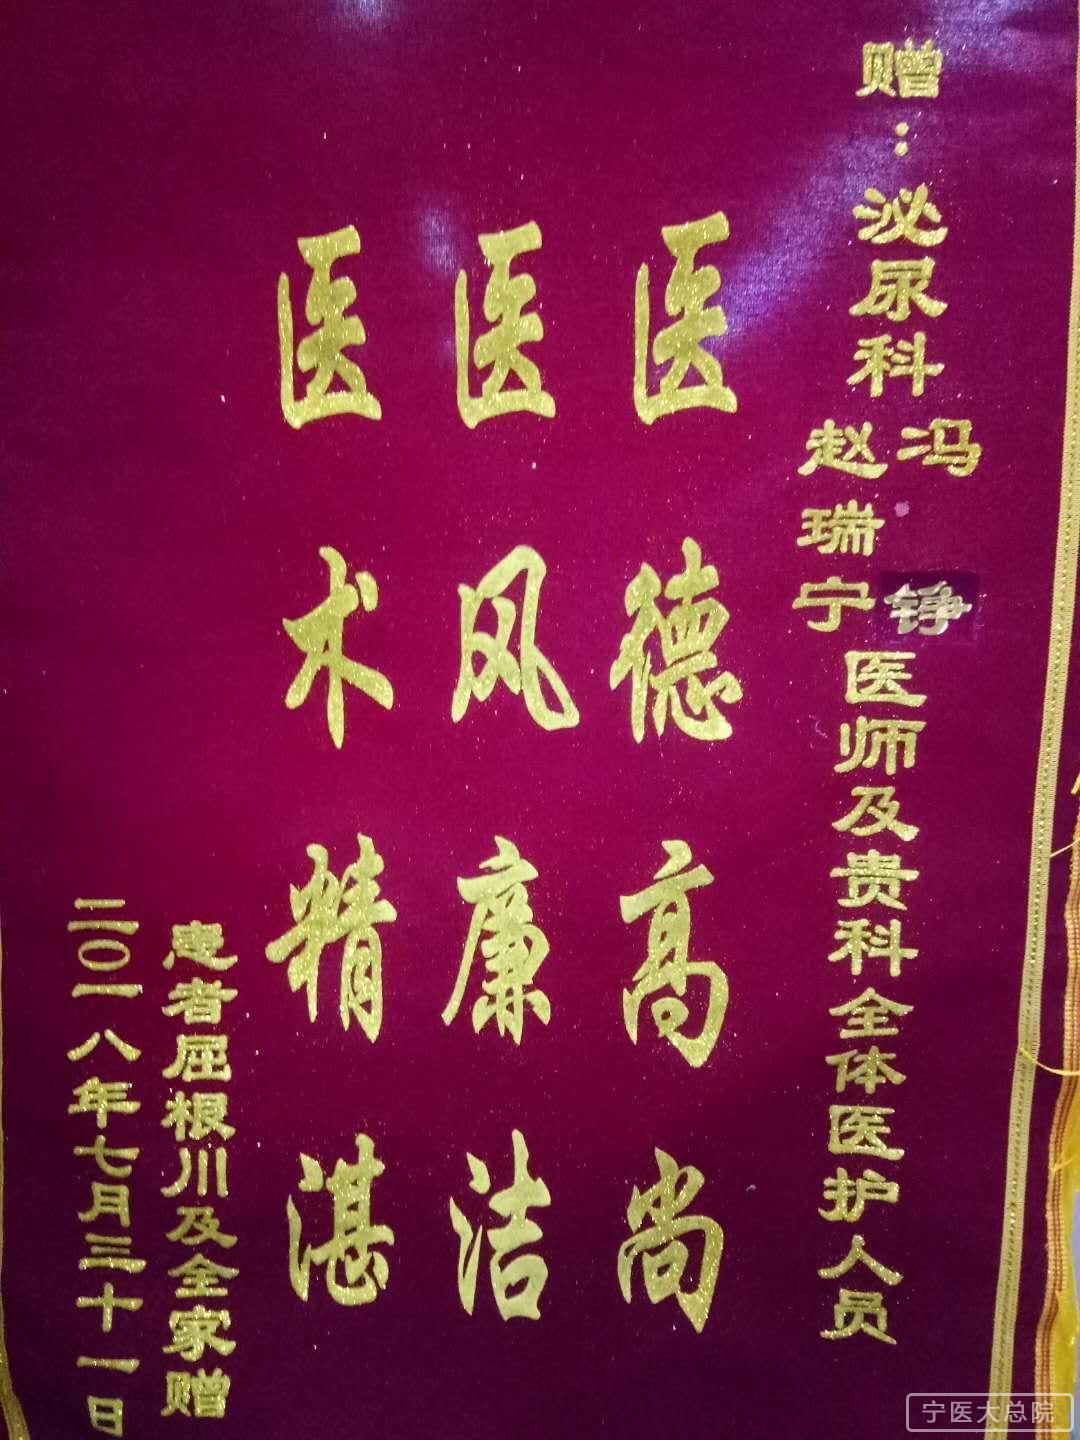 赠：泌尿科
冯铮
赵瑞宁
医师及贵科全体医护人员
医德高尚
医风廉洁
医术精湛
患者屈根川及全家赠
二〇一八年七月三十一日
宁医大总院